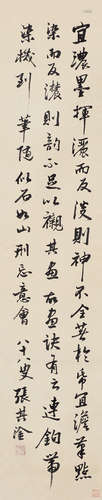 宜濃墨揮灑而反淺則神不全若於帛宜澹筆點
染而反濃則韻不足以觀其畫古畫訣有云連鉤帶
染機到筆隨似石如山形忘意會 八十八叟張其淦